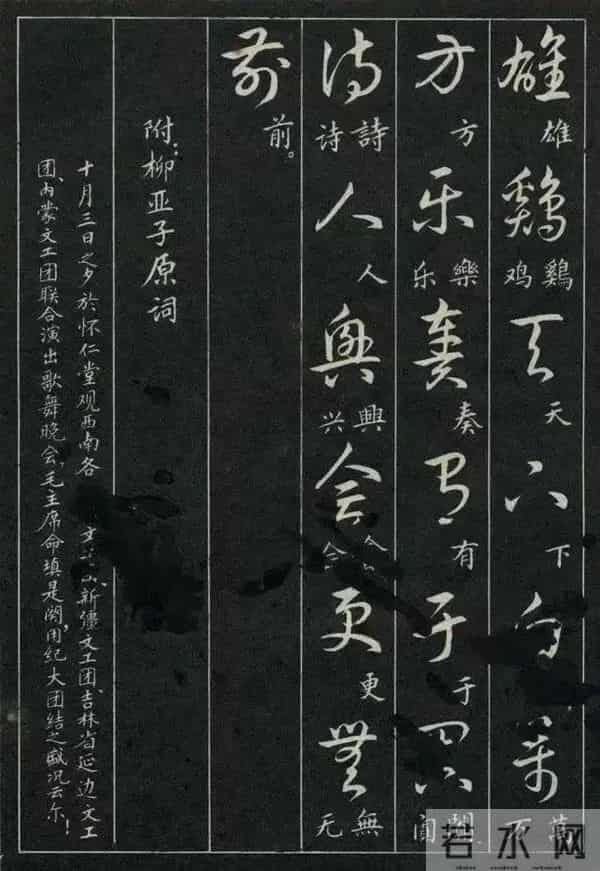 雄雞天下白萬
雄 鷄鸡 天 下 萬万
方樂奏有于闐
方 樂乐 奏 有 于 闐
詩人興會更無
詩诗 人 興兴 会 更 無无
前
前。
附：柳亚子原词
十月三日之夕於怀仁堂观西南各 文 新疆文工团、吉林省延边文工
团、内蒙文工团联合演出歌舞晚会，毛主席命填是阕，用纪大团结之盛况云尔！
若水网